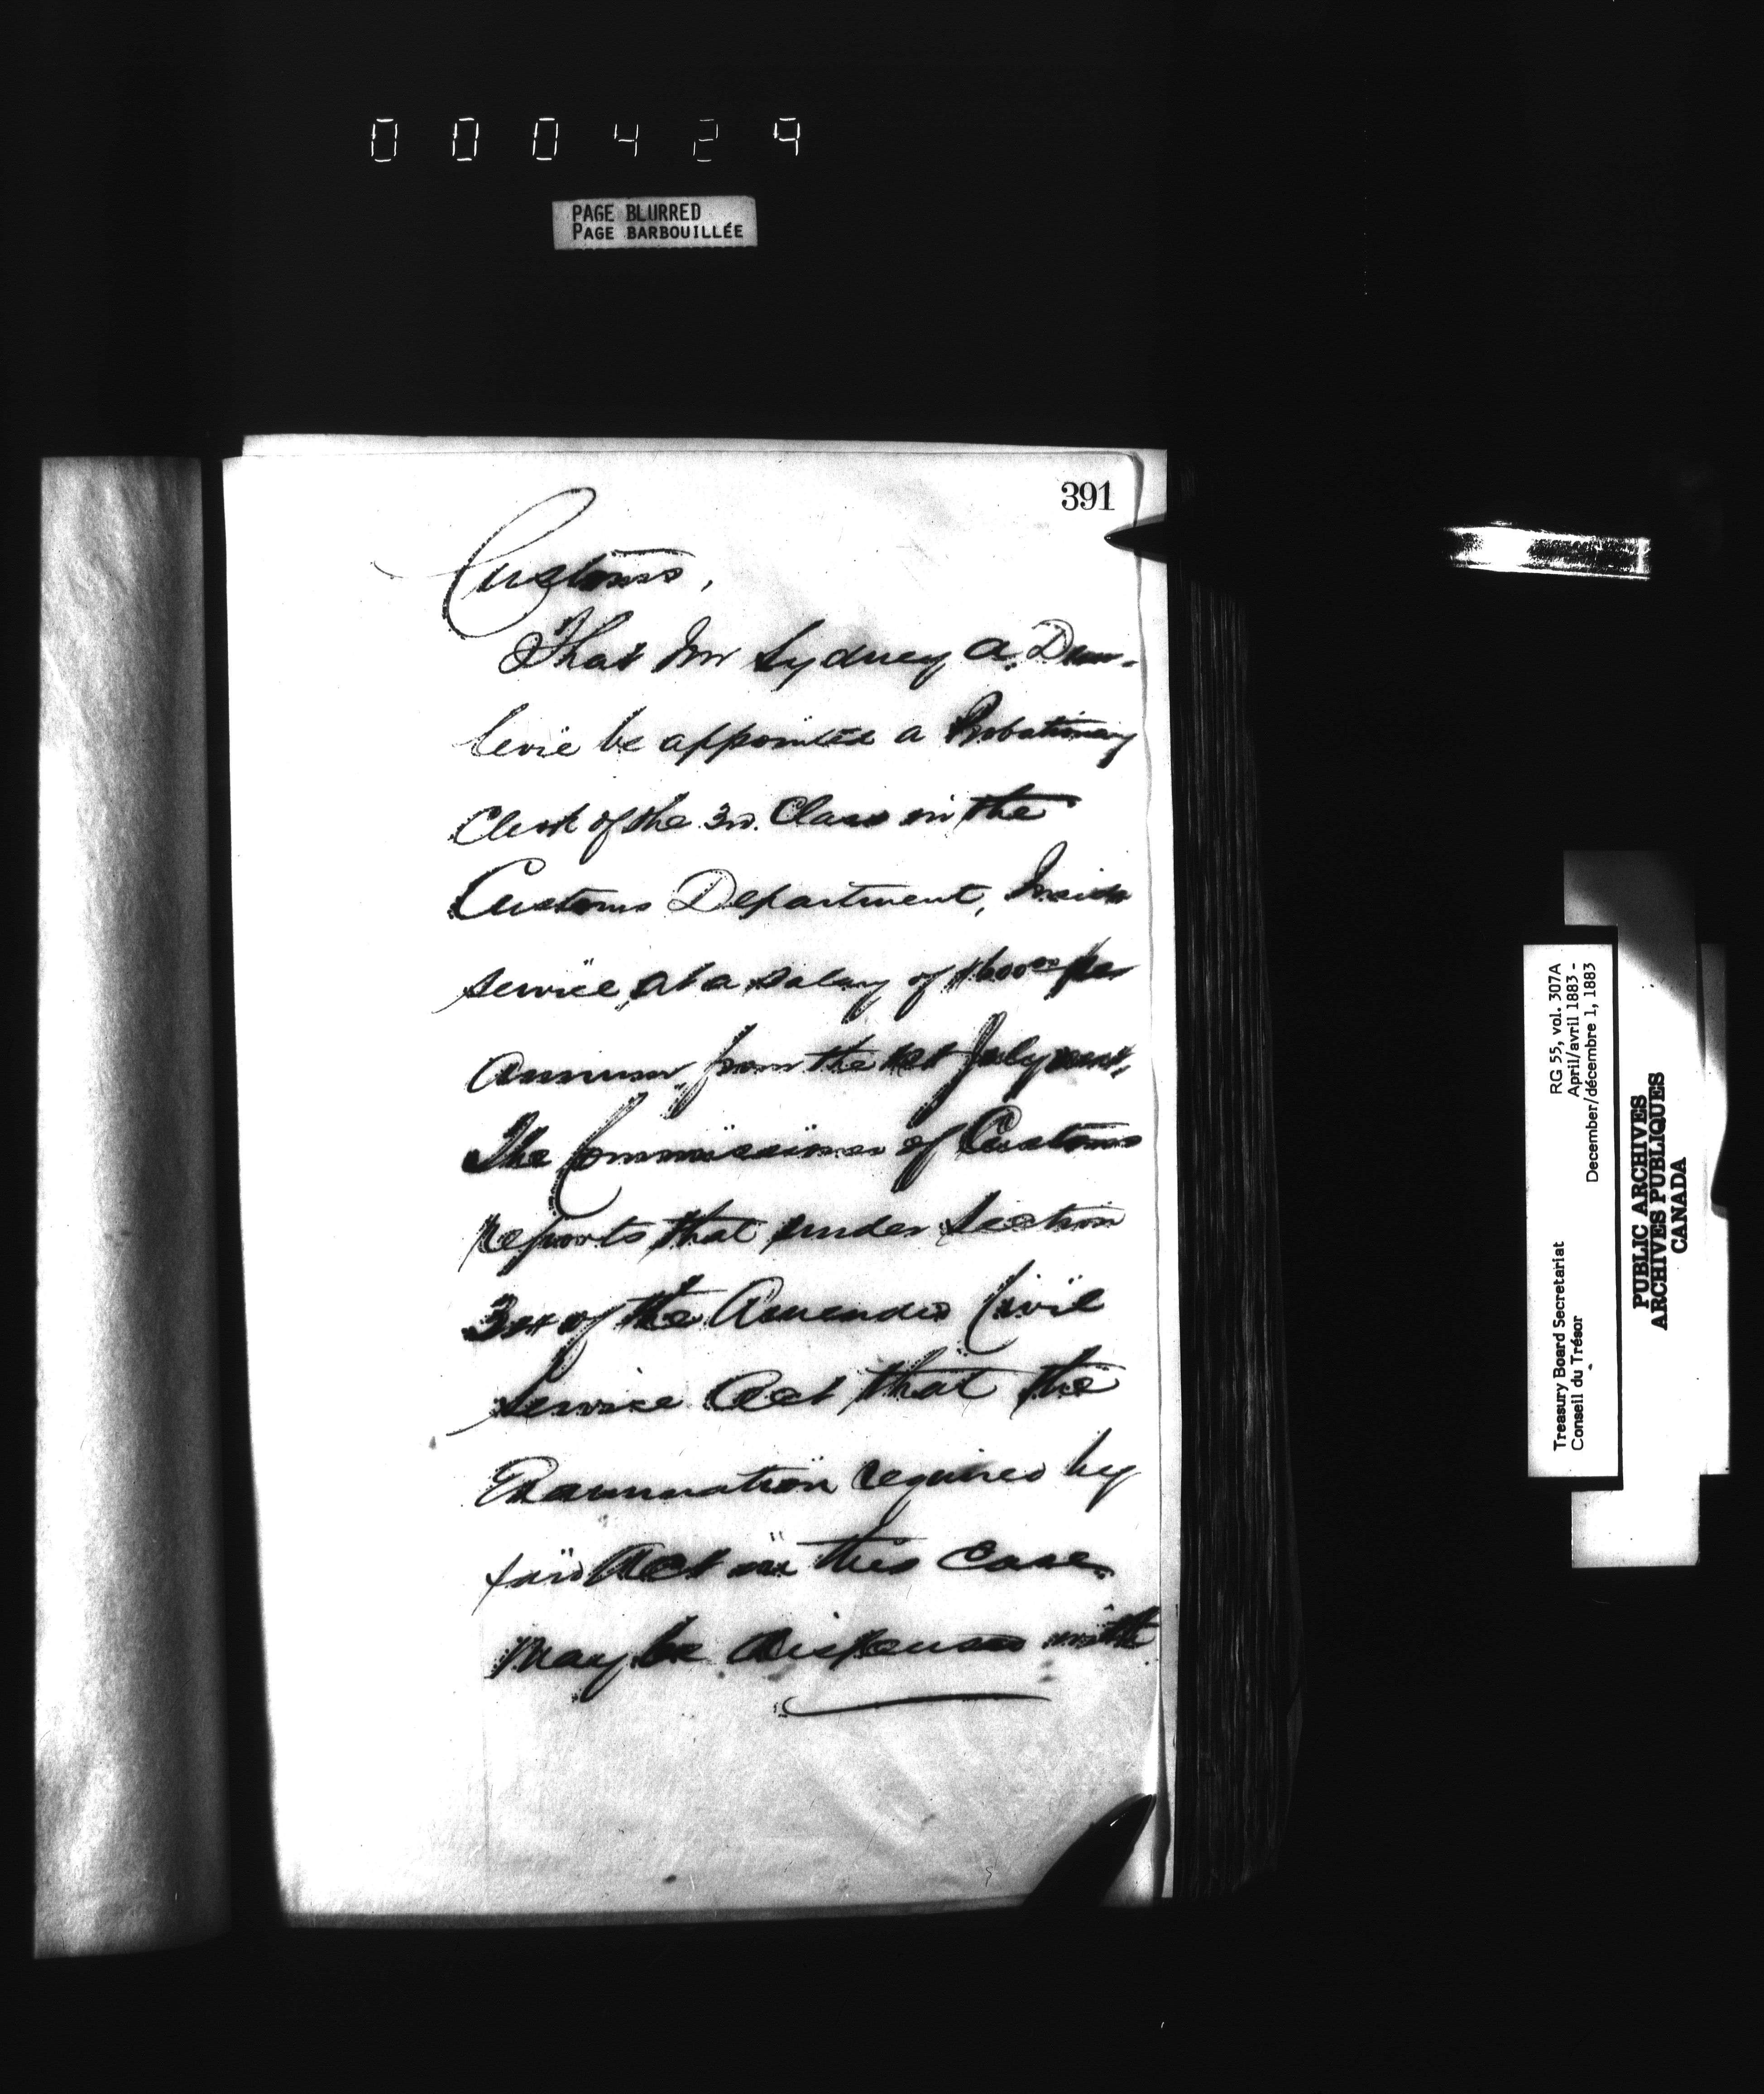 000429
PAGE BLURRED
PAGE BARBOUILLÉE
391
Customs,
That Mr Sydney A. Dun-
levie be appointed a Probationary
Clerk of the 3rd. Class in the
Customs Department, Inside
service, at a salary of $600 00 per
annum, from the 1st July next,
The Commissioner of Customs
reports that under Section
of the Amended Civil
Service Act that the
Examination required by
said Act in this Case
may be dispensed with
Treasury Board Secretariat
Conseil du Trésor
RG 55, vol. 307A
April/avril 1883 -
December/décembre 1, 1883
PUBLIC ARCHIVES
ARCHIVES PUBLIQUES
CANADA